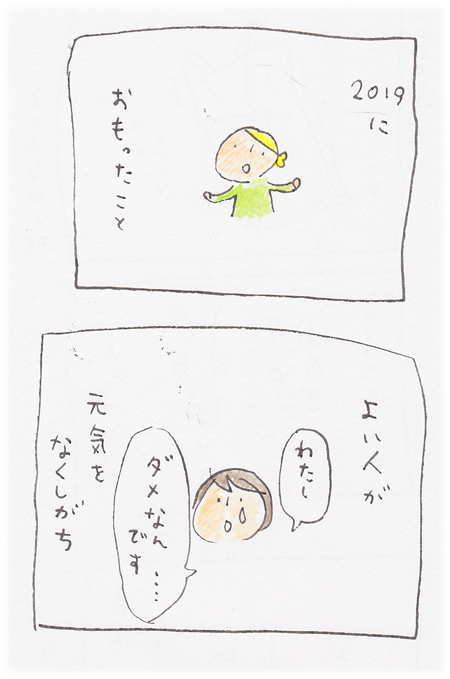 2019
に
おもったこと
よい人が
わたし
ダメなん
……です
元気を
なくしがち